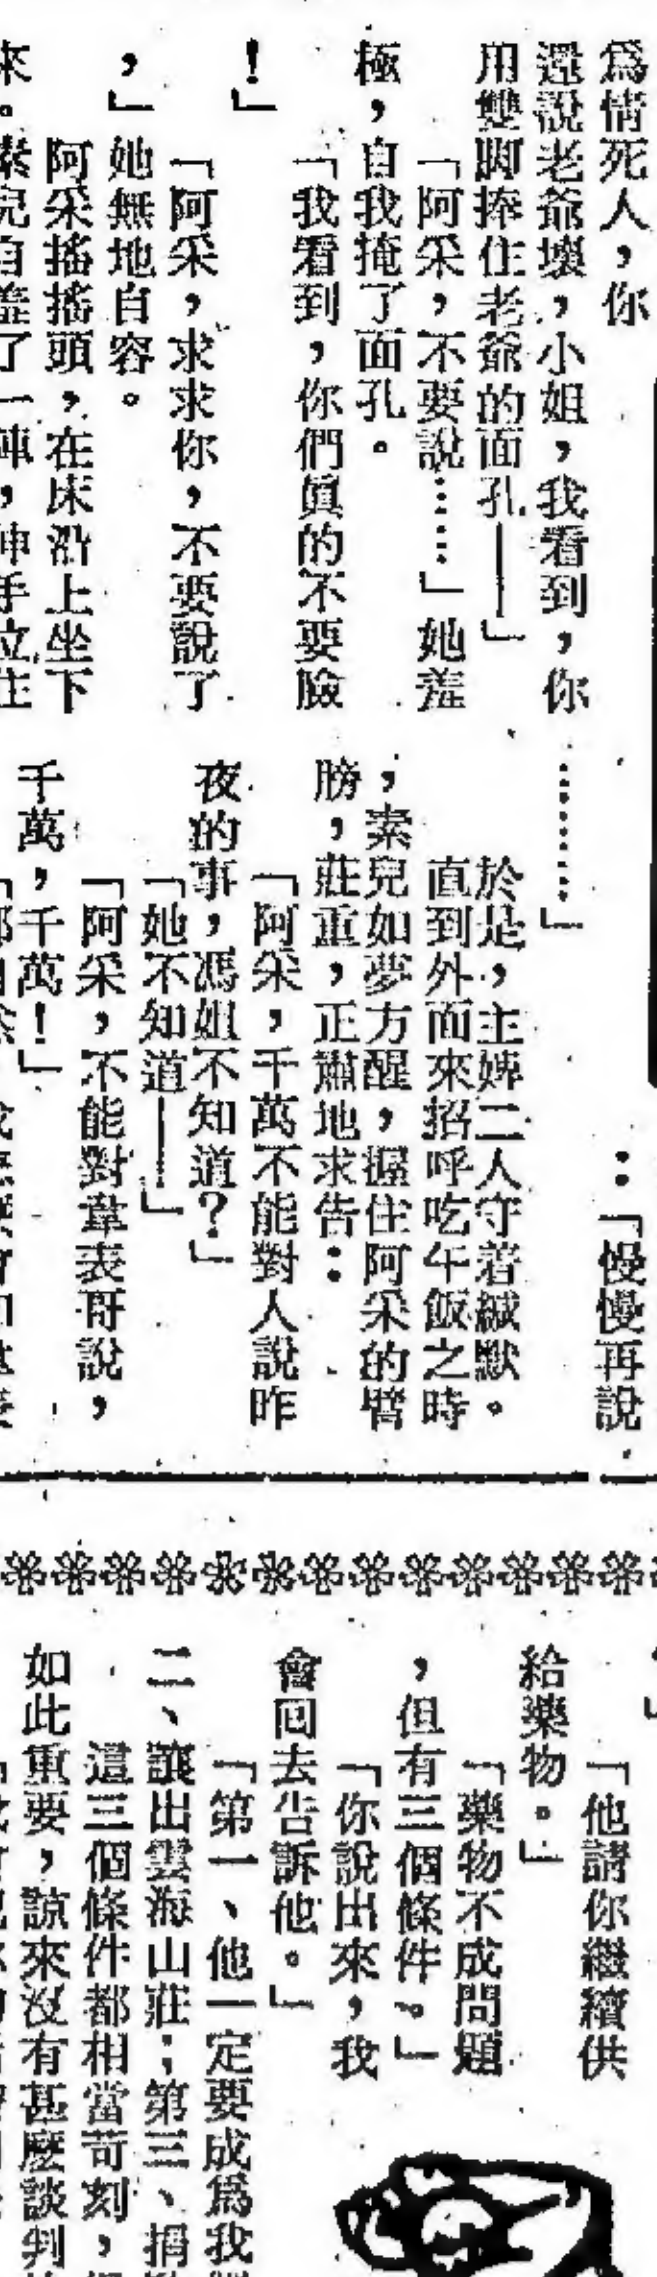 爲情死人，你
還說老爺壞，小姐，我看到，你
用雙脚捧住老爺的面孔——」
「阿采，不要說……」她羞
極，自我掩了面孔。
「我看到，你們眞的不要臉
！」
「阿采，求求你，不要說了
，」她無地自容。
阿采搖搖頭，在床沿上坐下
來。素兒自羞了一陣，伸手拉住
：「慢慢再說
………」
於是，主婢二人守着緘默。
直到外面來招呼吃午飯之時
，素兒如夢方醒，握住阿采的臂
膀，莊重，正肅地求告：
「阿采，千萬不能對人說昨
夜的事，馮姐不知道？」
「她不知道——」
「阿采，不能對韋表哥說，
千萬，千萬！」
」
「他請你繼續供
給藥物。」
「藥物不成問題
，但有三個條件。」
「你說出來，我
會囘去告訴他。」
「第一、他一定要成爲我
二、讓出雲海山莊；第三、捐
這三個條件都相當苛刻，
如此重要，諒來沒有甚麽談判